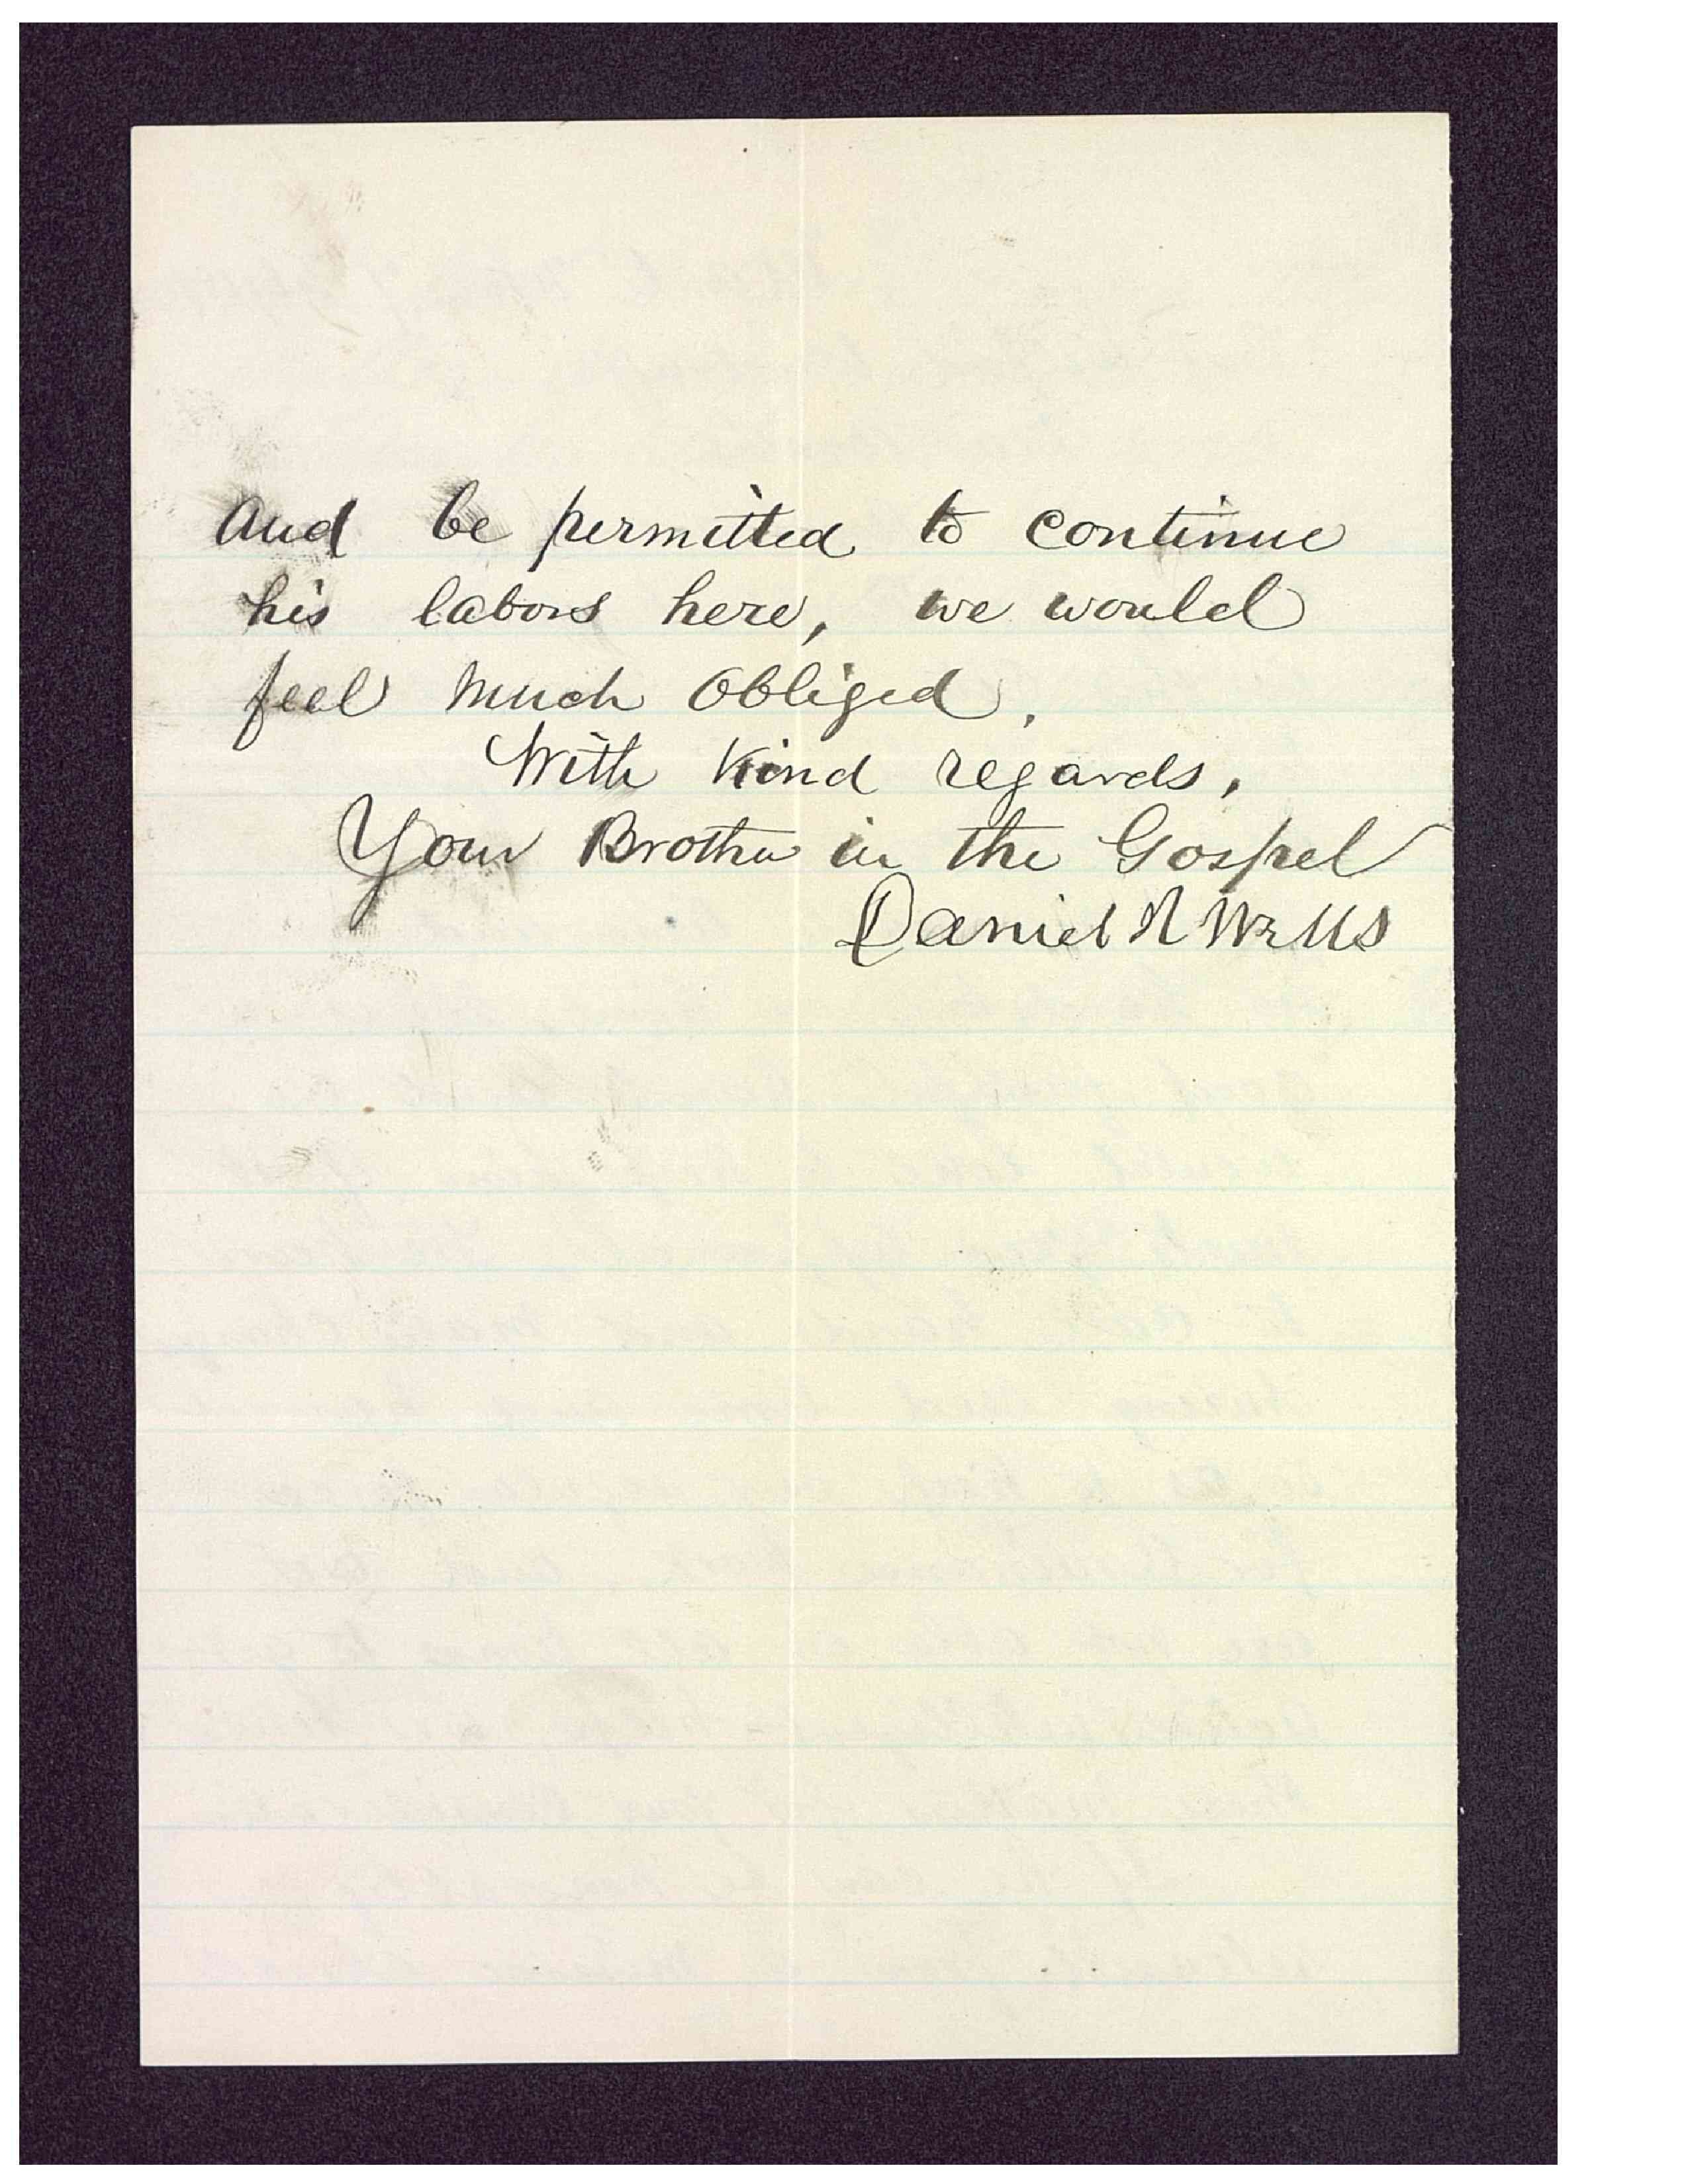 and be permitted to continue
his labors here, we would
feel much obliged.
With kind regards,
Your Brother in the Gospel
Daniel H Wells